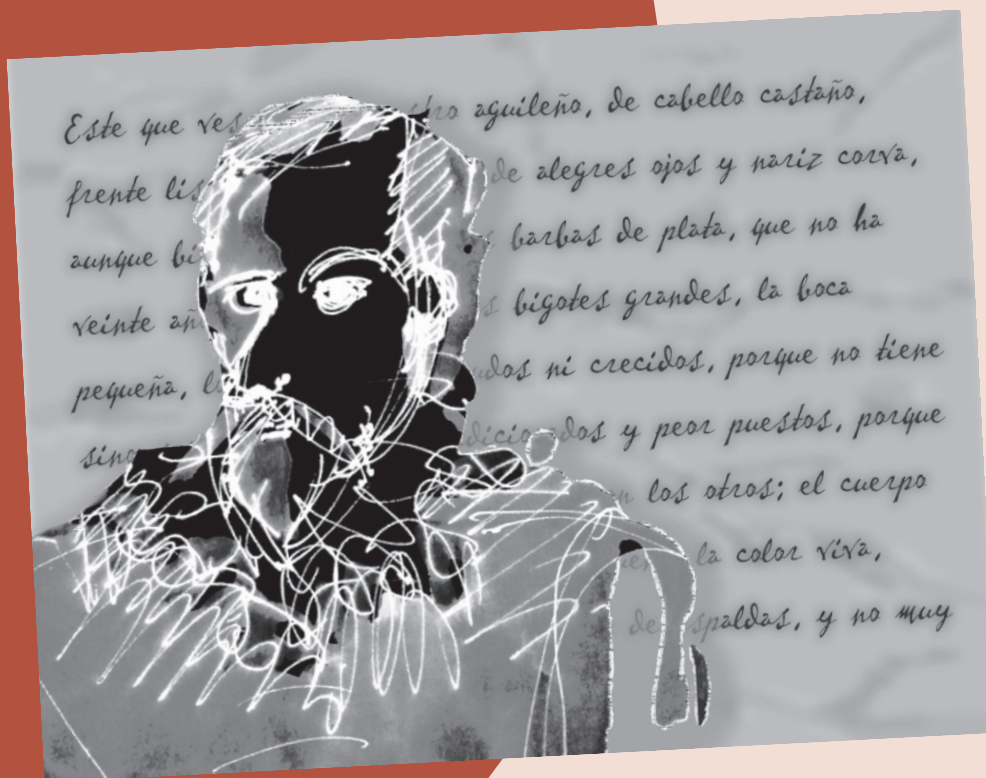 Este que ves aguileño, de cabello castaño,
frente de alegres ojos y nariz corva,
aunque barbas de plata, que no ha
veinte bigotes grandes, la boca
pequeña, ni crecidos, porque no tiene
y peor puestos, porque
los otros; el cuerpo
la color viva,
y no muy